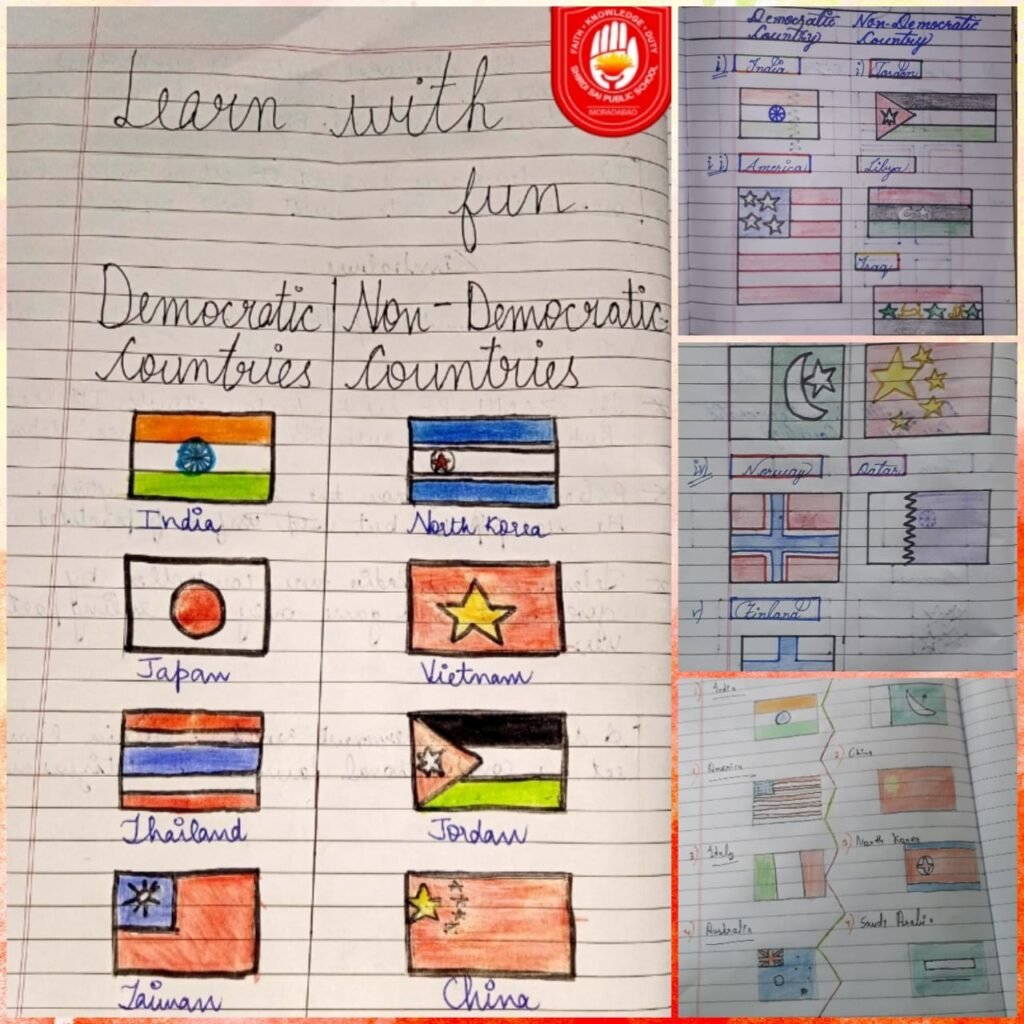 Learn with
fun.
Democratic
Countries
Non-Democratic
Countries
India
North Korea
Japan
Vietnam
Thailand
Jordan
Taiwan
China
FAITH • KNOWLEDGE • DUTY
SHIRDI SAI PUBLIC SCHOOL
MORADABAD
Democratic
Country
Non-Democratic
Country
i) India
i) Jordan
ii) America
Libya
Iraq
iv) Norway
Qatar
v) Finland
1) India
2) China
America
3) Italy
3) North Korea
4) Australia
4) Saudi Arabia